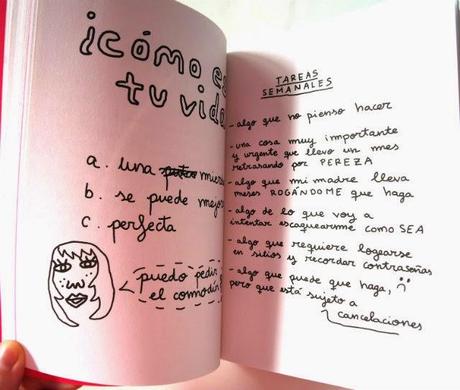 ¿cómo es
tu vida
a. una puta mierda
b. se puede mejorar
c. perfecta
puedo pedir
el comodín
TAREAS
SEMANALES
- algo que no pienso hacer
- una cosa muy importante
y urgente que llevo un mes
retrasando por PEREZA
- algo que mi madre lleva
meses ROGÁNDOME que haga
- algo de lo que voy a
intentar escaquearme como SEA
- algo que requiere logearse
en sitios y recordar contraseñas
- algo que puede que haga,
pero que está sujeto a
cancelaciones